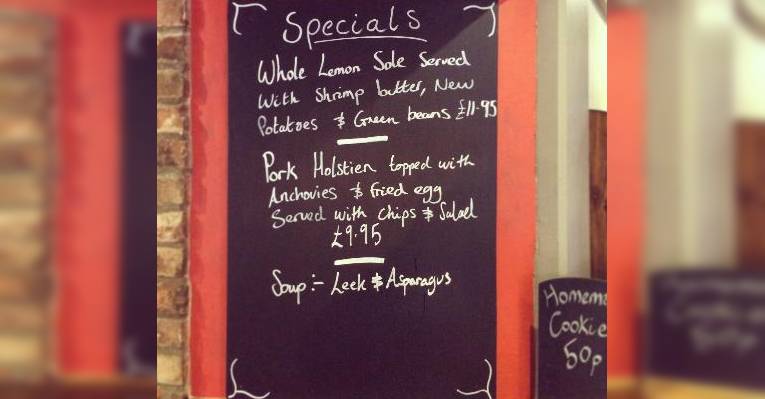 Specials
Whole Lemon Sole Served
With Shrimp butter, New
Potatoes & Green beans £11.95
Pork Holstien topped with
Anchovies & fried egg
Served with chips & Salad
£9.95
Soup :- Leek & Asparagus
Homema
Cookie
50p